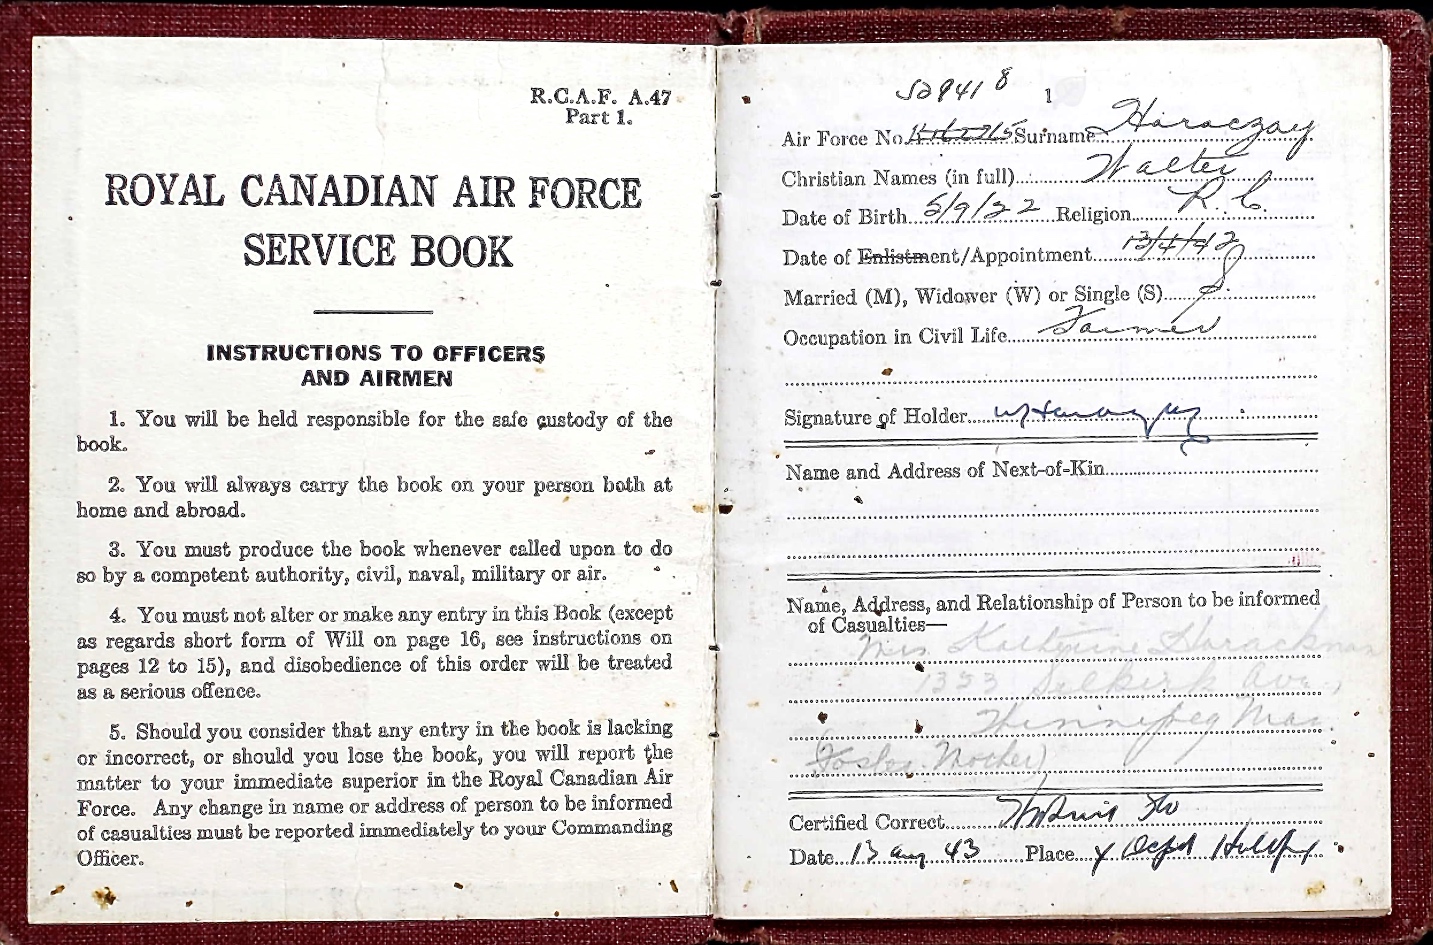 R.C.A.F. A.47
Part 1.
ROYAL CANADIAN AIR FORCE
SERVICE BOOK
INSTRUCTIONS TO OFFICERS
AND AIRMEN
1. You will be held responsible for the safe custody of the
book.
2. You will always carry the book on your person both at
home and abroad.
3. You must produce the book whenever called upon to do
so by a competent authority, civil, naval, military or air.
4. You must not alter or make any entry in this Book (except
as regards short form of Will on page 16, see instructions on
pages 12 to 15), and disobedience of this order will be treated
as a serious offence.
5. Should you consider that any entry in the book is lacking
or incorrect, or should you lose the book, you will report the
matter to your immediate superior in the Royal Canadian Air
Force. Any change in name or address of person to be informed
of casualties must be reported immediately to your Commanding
Officer.
1
Air Force No. Surname Haraczay
Christian Names (in full) Walter
Date of Birth 5/9/22 Religion R.C.
Date of Enlistment/Appointment 13/4/42
Married (M), Widower (W) or Single (S) S
Occupation in Civil Life Farmer
Signature of Holder W Haraczay
Name and Address of Next-of-Kin
Name, Address, and Relationship of Person to be informed
of Casualties—
Mrs. Katherine
1323 Selkirk Ave.,
Winnipeg Man
(Foster Mother)
Certified Correct
Date 13 Aug 43 Place Y Depot Halifax